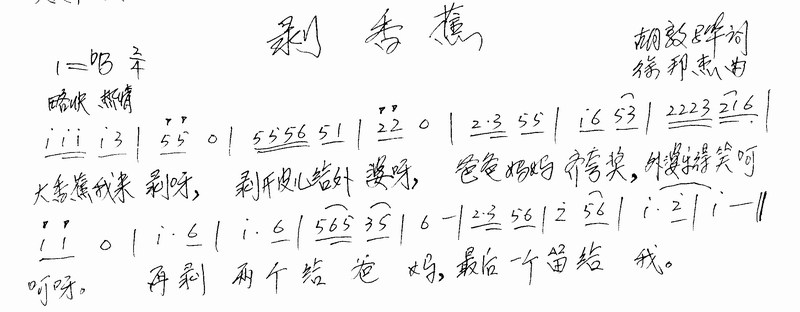 剥香蕉
1=ᵇB 2/4
胡敦华词
徐邦杰曲
略快 热情
i i i i 3 | 5 5 0 | 5 5 5 6 5 1 | 2 2 0 | 2·3 5 5 | i 6 5 3 | 2 2 2 3 2 1 6 |
大香蕉我来 剥呀, 剥开皮儿给外 婆呀, 爸爸妈妈 齐夸奖, 外婆乐得笑呵
i i 0 | i · 6 | i · 6 | 5 6 5 3 5 | 6 — | 2·3 5 6 | 2 5 6 | i · 2 | i — ‖
呵呀。 再剥 两个给 爸 妈, 最后一个留给 我。